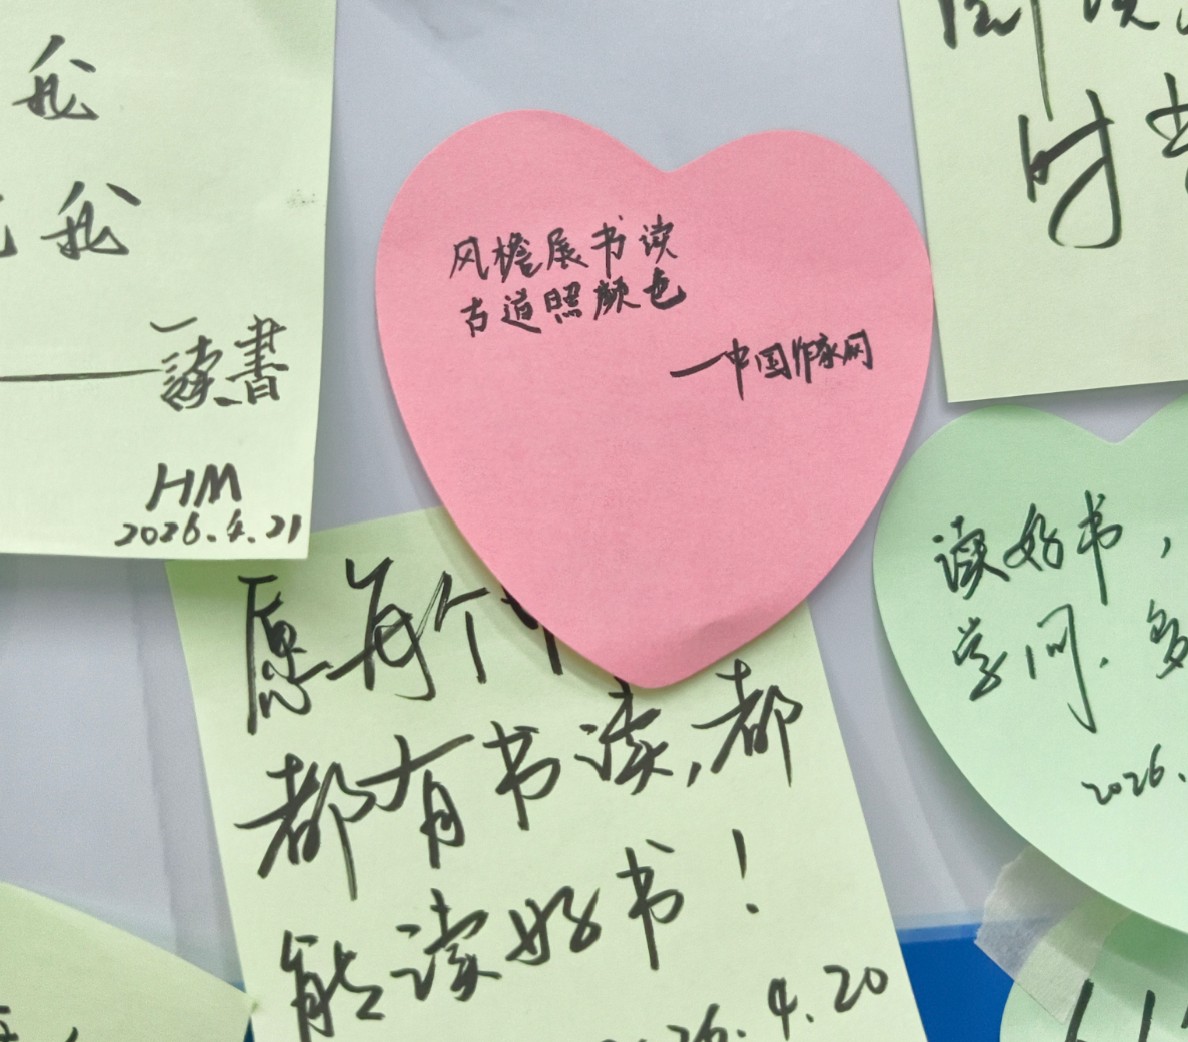 我
我
——读書
HM
2026.4.21
风檐展书读
古道照颜色
—中国作家网
时
读好书，
学问.多
2026.
愿每个
都有书读,都
能读好书！
26.4.20